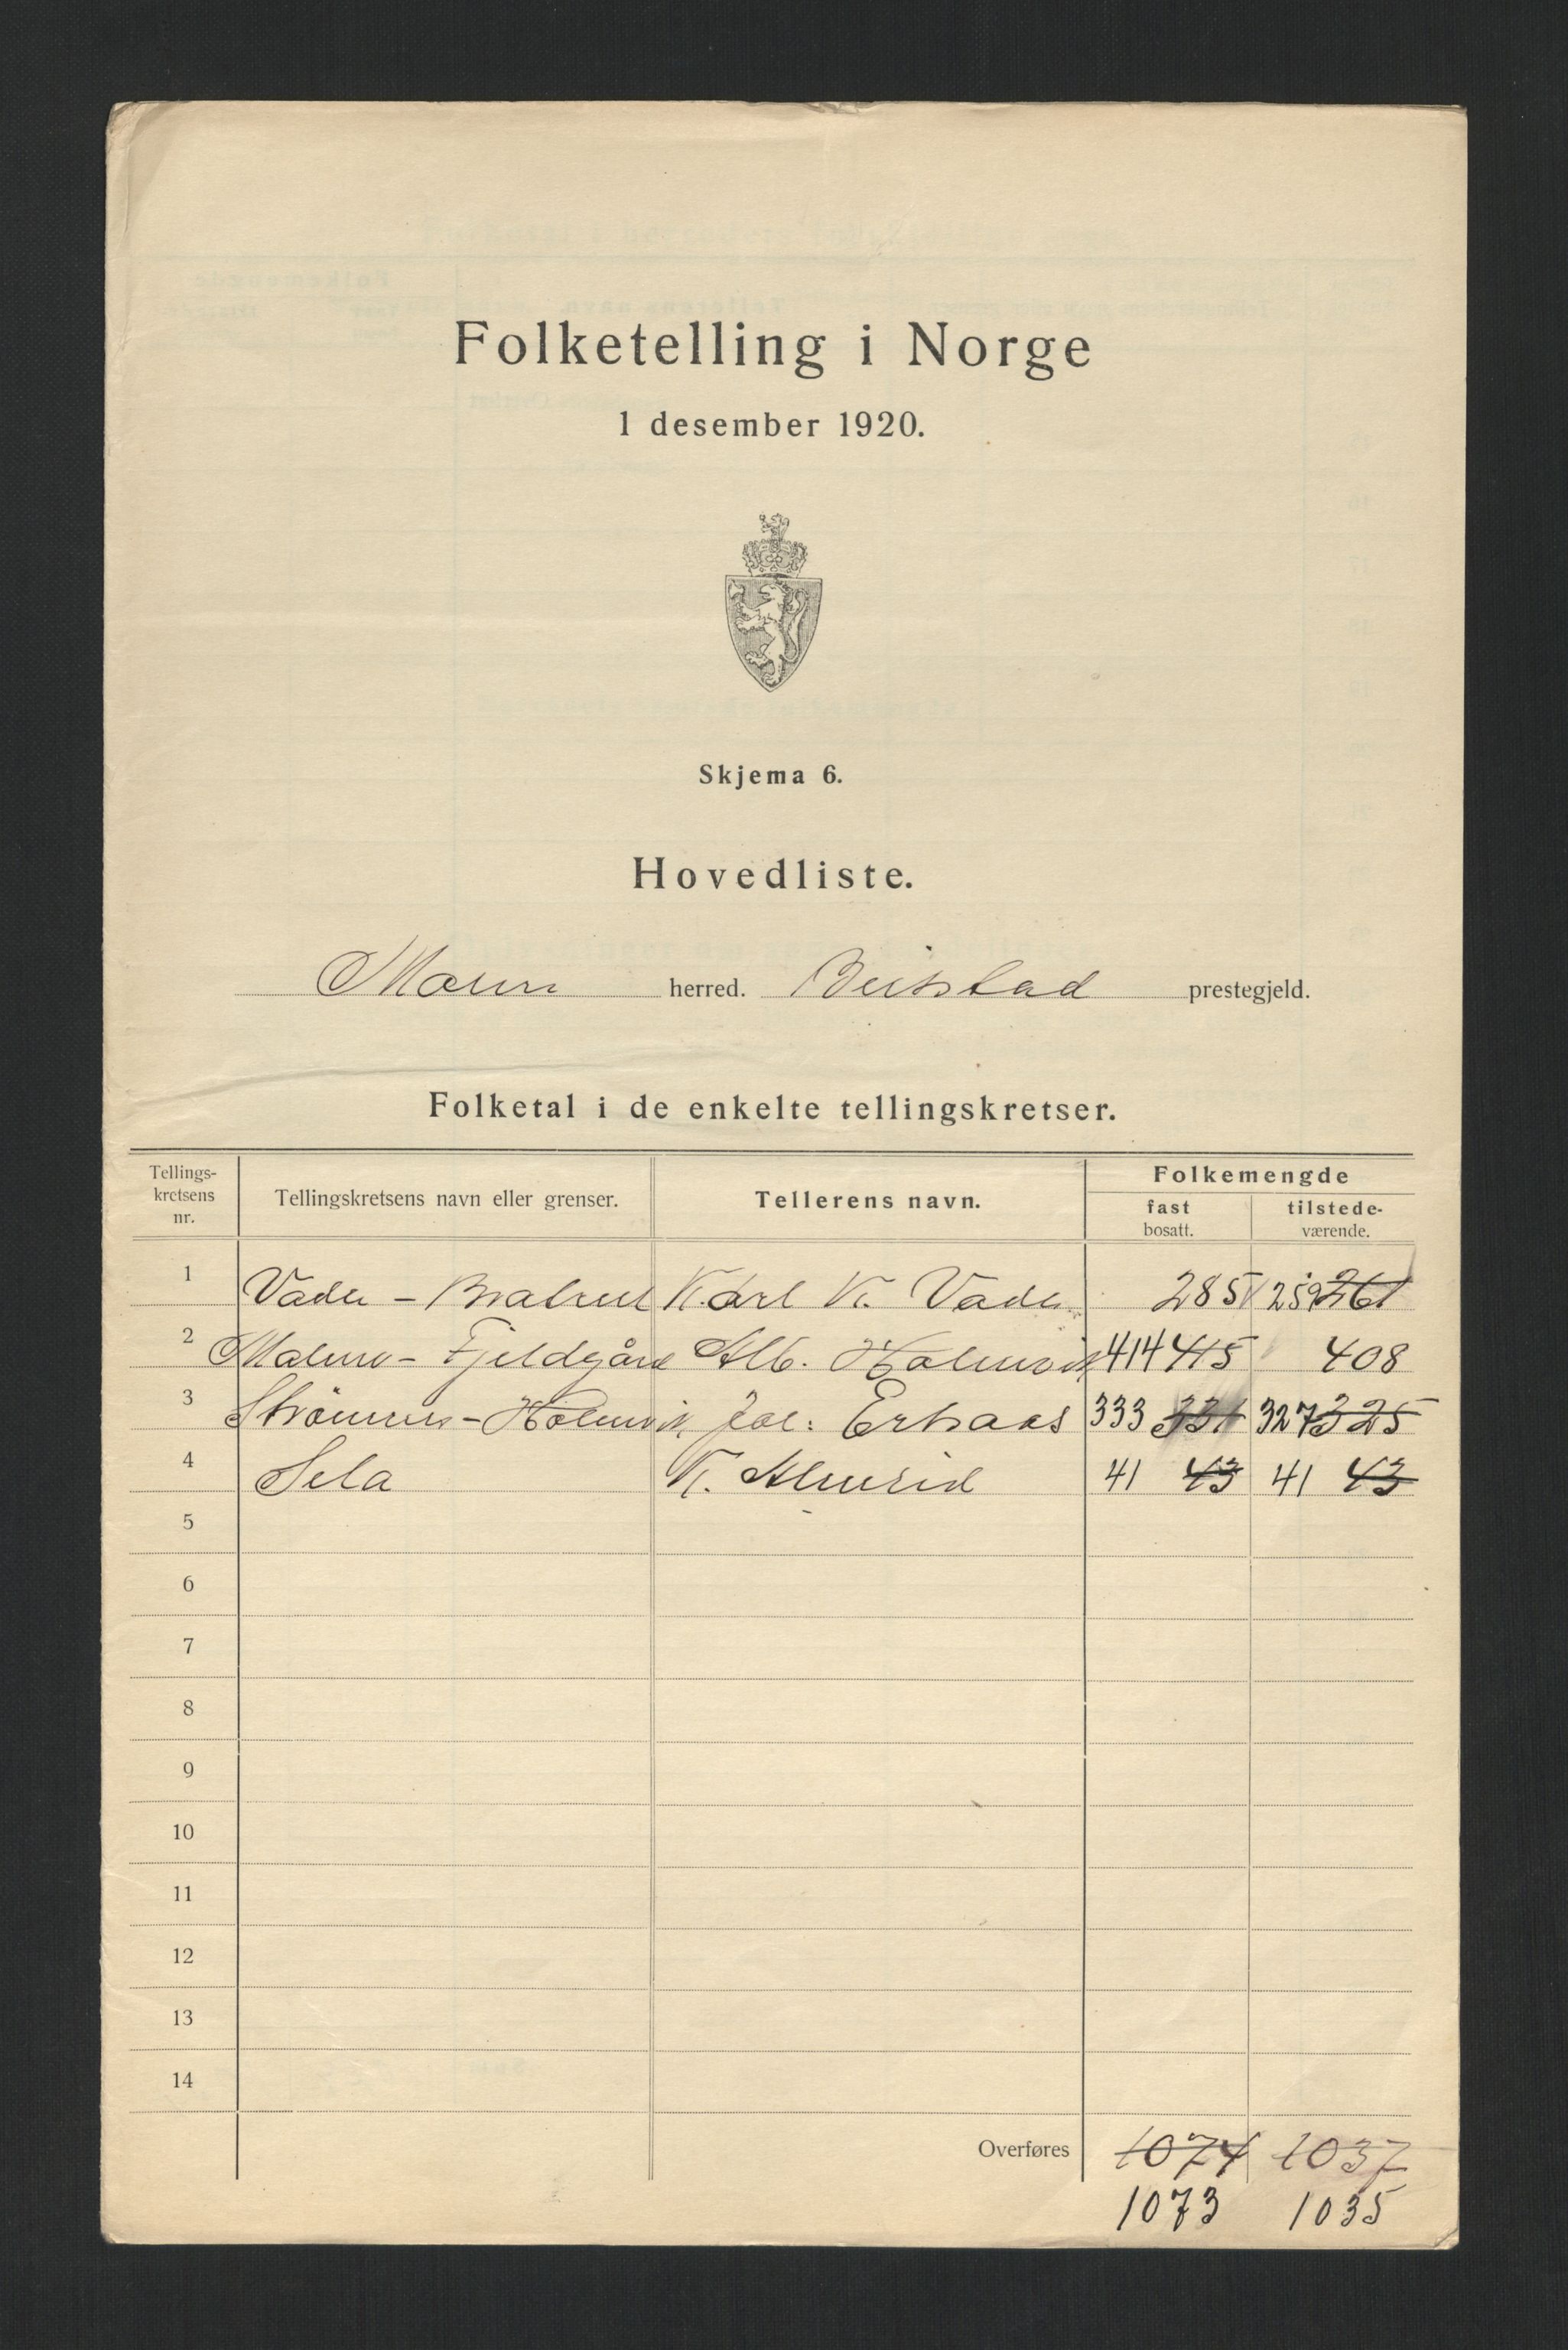 Folketelling i Norge
1 desember 1920.
Skjema 6.
Hovedliste.
herred. Beitstad prestegjeld.
Folketal i de enkelte tellingskretser.
Tellings-
kretsens
nr.
Tellingskretsens navn eller grenser.
Tellerens navn.
Folkemengde
fast
bosatt.
tilstede-
værende.
1 Karl K. 285 259 261
2 Malmo - Fjeldgård Alb. Holmvik 414 415 408
3 Holmvik Joh: 333 331 327 325
4 Sela K. 41 43 41 43
5
6
7
8
9
10
11
12
13
14
Overføres 1074 1037
1073 1035